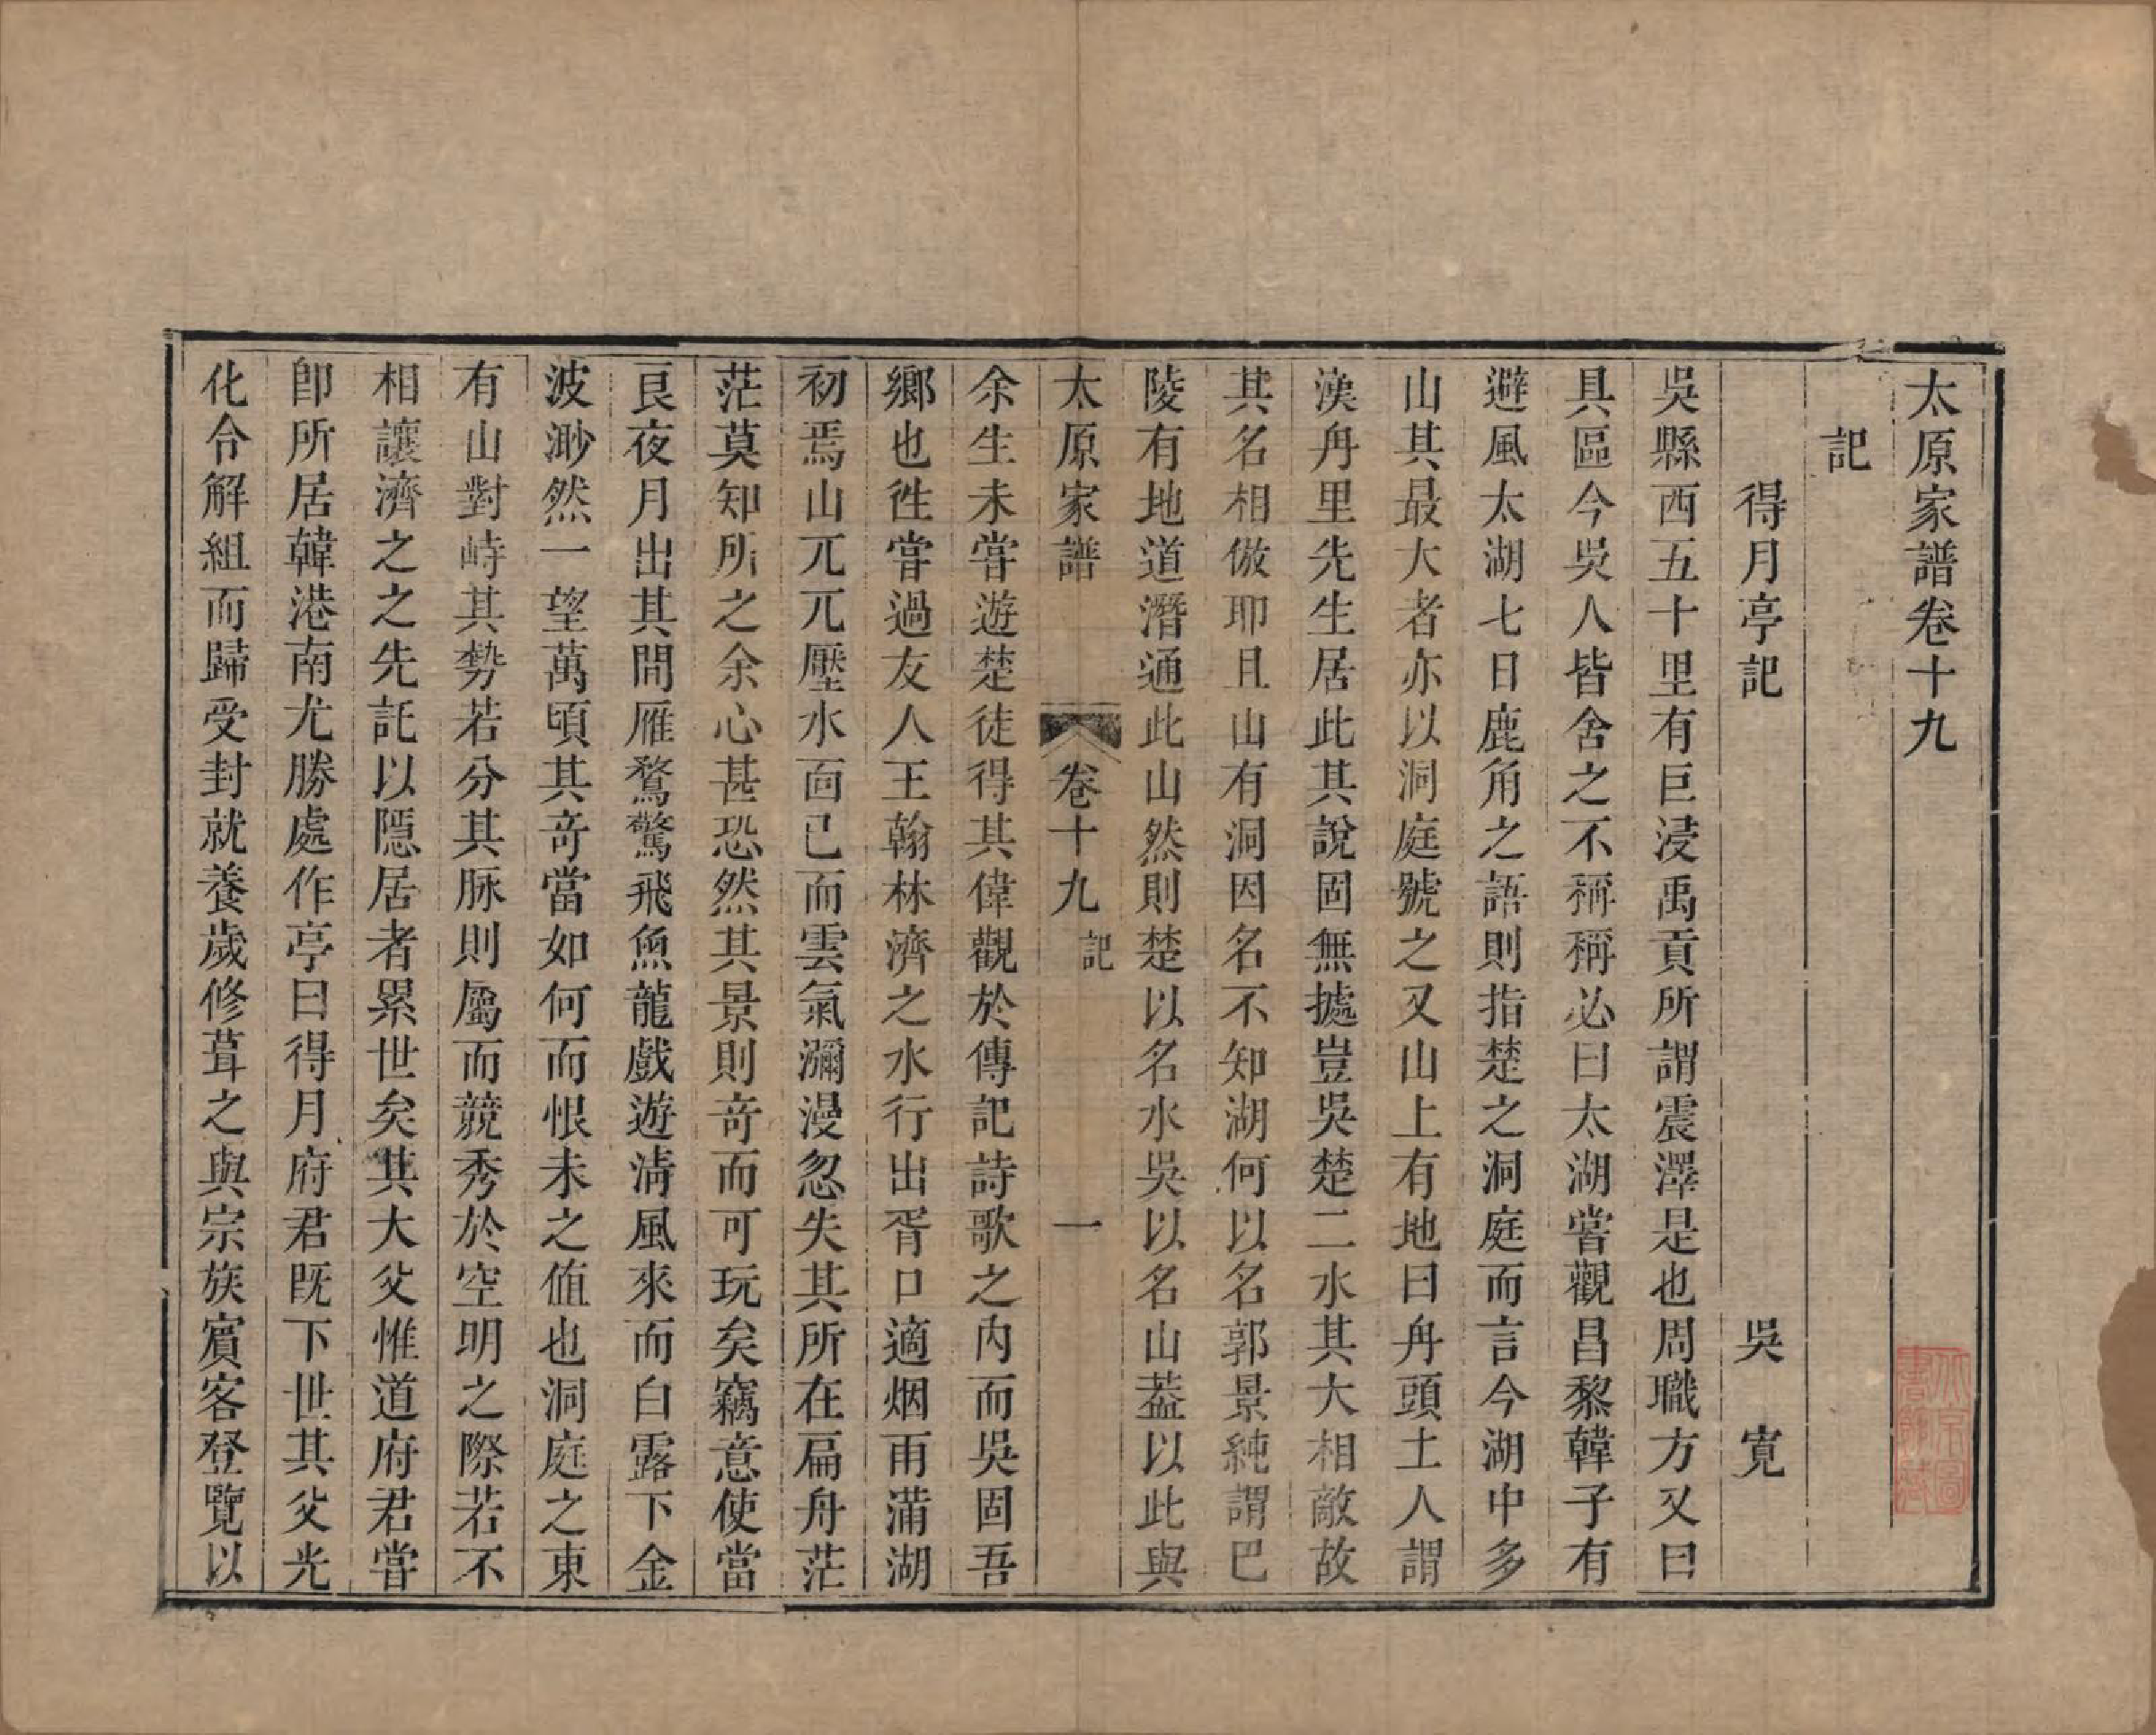 太原家譜卷十九
記
得月亭記　吳寛
吳縣西五十里有巨浸禹貢所謂震澤是也周職方又曰
具區今吳人皆舍之不稱稱必曰太湖嘗觀昌黎韓子有
避風太湖七日鹿角之語則指楚之洞庭而言今湖中多
山其最大者亦以洞庭號之又山上有地曰舟頭土人謂
漁舟里先生居此其說固無據豈吳楚二水其大相敵故
其名相倣耶且山有洞因名不知湖何以名郭景純謂巴
陵有地道潛通此山然則楚以名水吳以名山葢以此與
太原家譜　卷十九　記　一
余生未嘗遊楚徒得其偉觀於傳記詩歌之內而吳固吾
鄉也徃嘗過友人王翰林濟之水行出胥口適烟雨滿湖
初焉山兀兀壓水面已而雲氣瀰漫忽失其所在扁舟茫
茫莫知所之余心甚恐然其景則竒而可玩矣竊意使當
良夜月出其間雁鶩驚飛魚龍戲遊淸風來而白露下金
波渺然一望萬頃其竒當如何而恨未之值也洞庭之東
有山對峙其勢若分其脉則屬而競秀於空明之際若不
相讓濟之之先託以隱居者累世矣其大父惟道府君嘗
卽所居韓港南尤勝處作亭曰得月府君旣下世其父光
化令解組而歸受封就養歲修葺之與宗族賓客登覽以